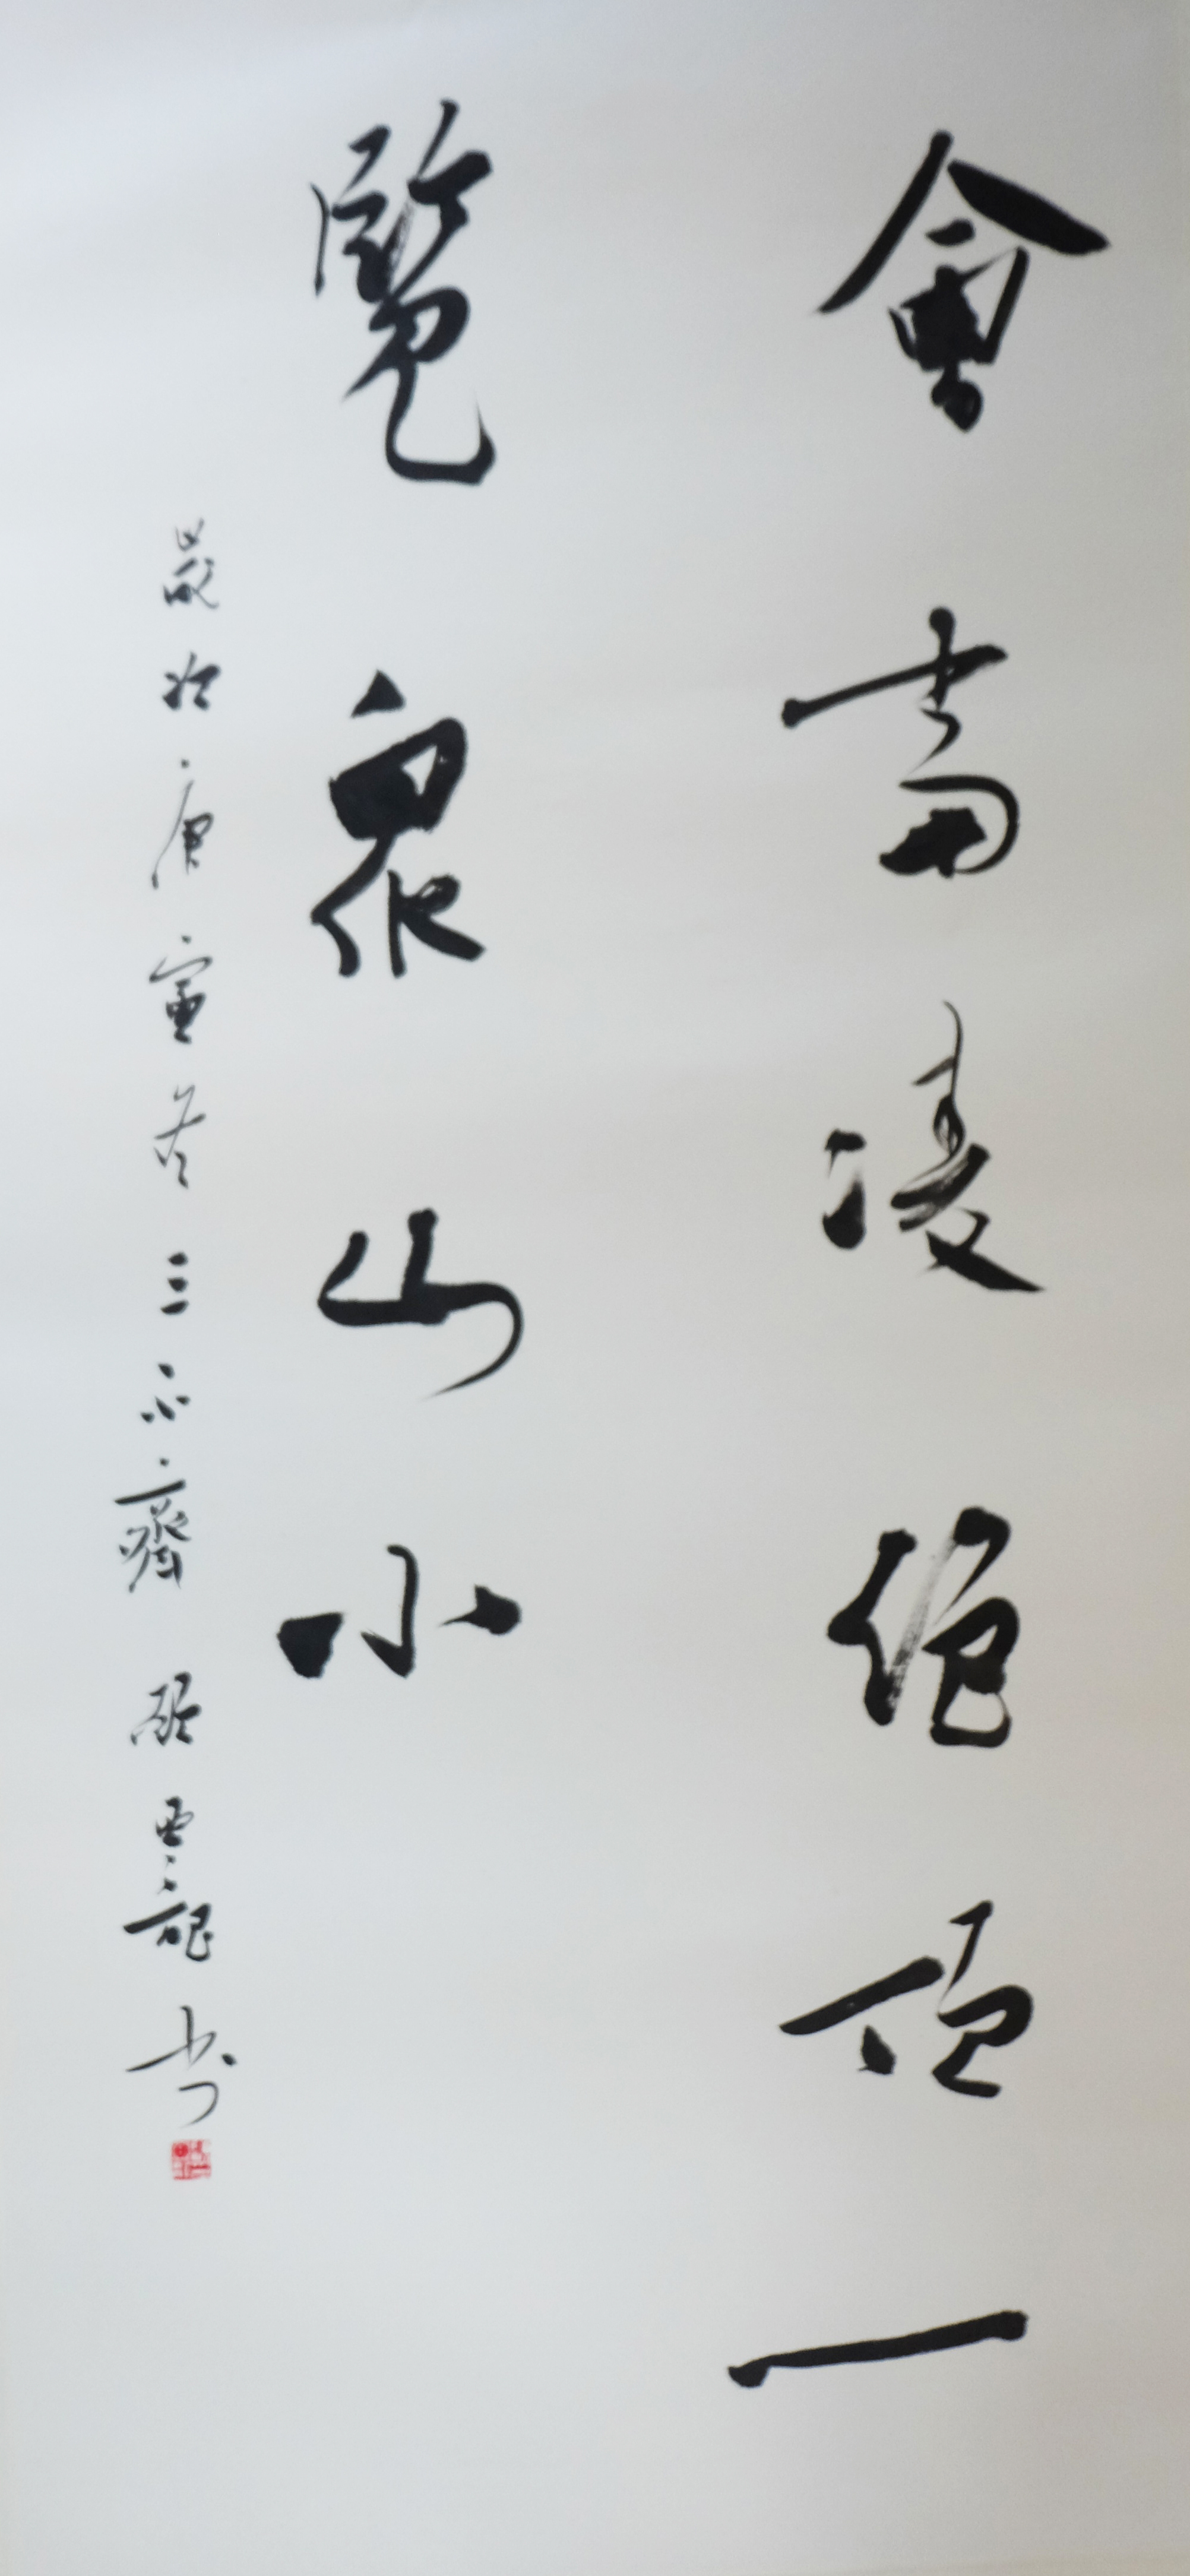 會當凌絕頂一
覽眾山小
歲次庚寅冬三不齋 張雲龍書